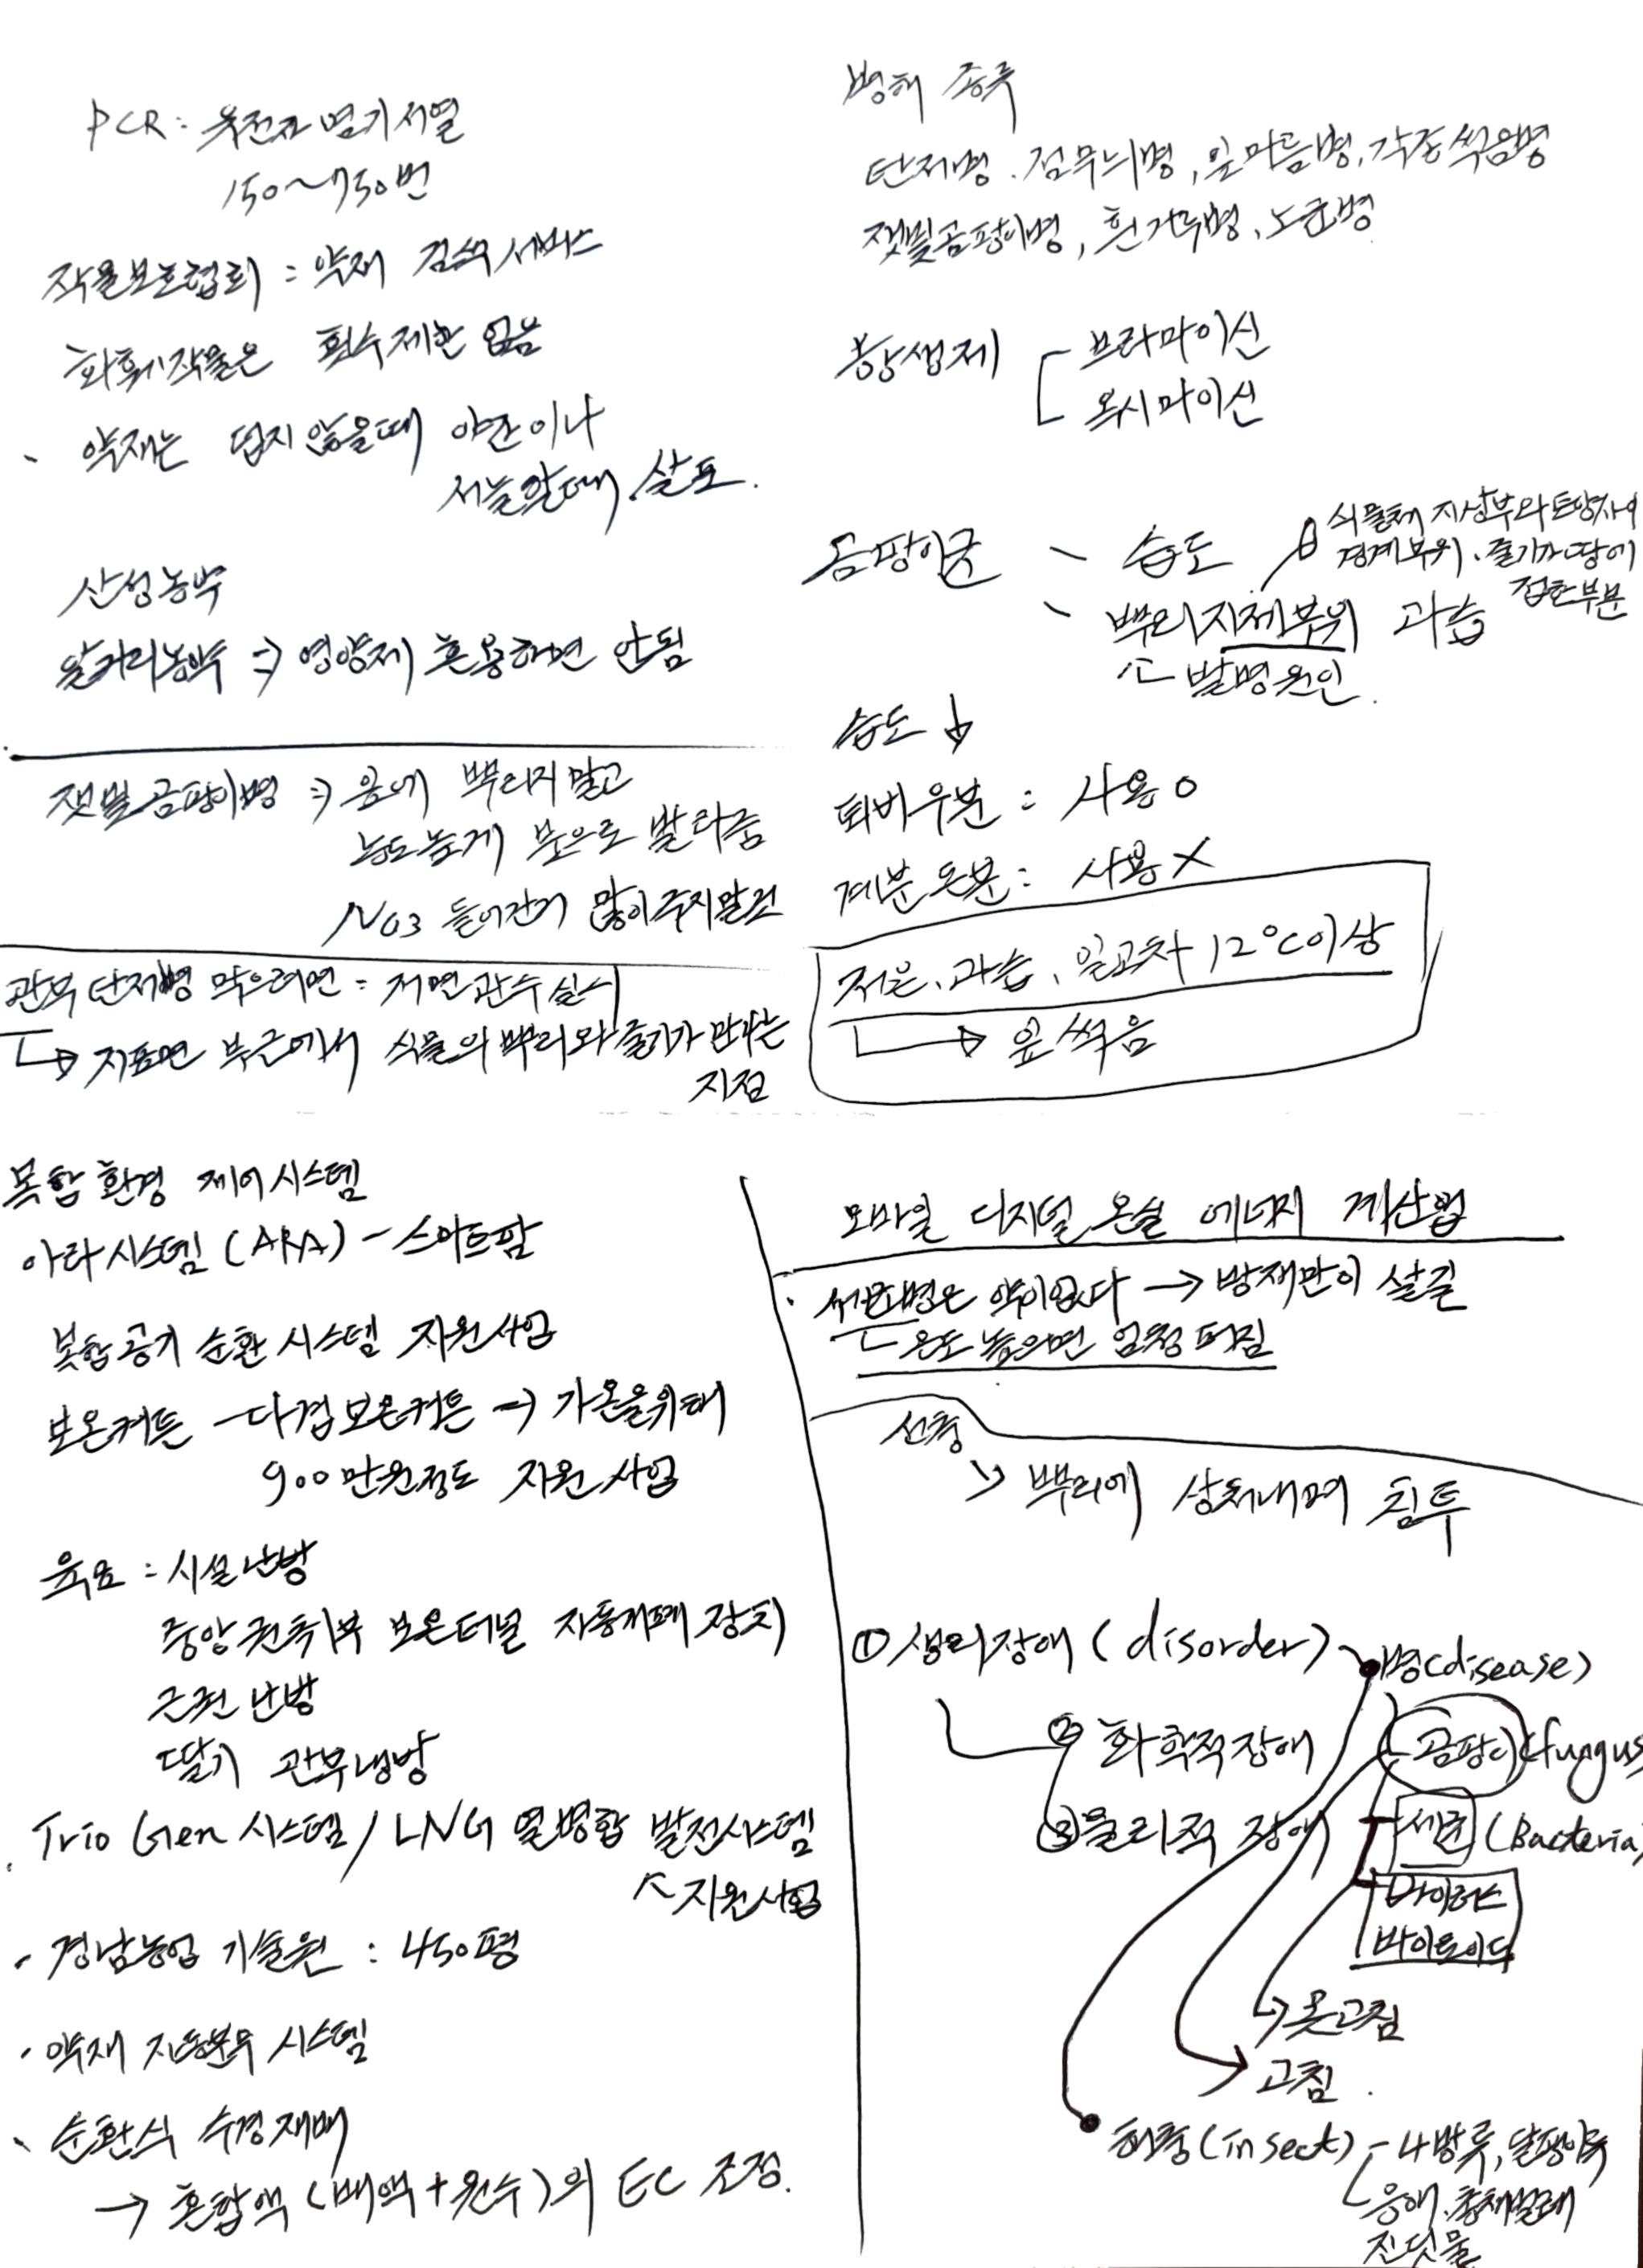 PCR : 유전자 염기서열
150~750번
작물보호협회 : 약제 검색서비스
화훼작물은 횟수제한 없음
약재는 덥지 않을때 야간이나
서늘할때 살포.
산성농약
알카리농약 => 영양제 혼용하면 안됨
잿빛곰팡이병 => 꽃에 뿌리지말고
농도높게 붓으로 발라줌
NO3 들어간거 많이주지말것
관부 탄저병 막으려면 = 저면관수실시
↳ 지표면 부근에서 식물의 뿌리와 줄기가 만나는
지점
병해 종류
탄저병, 점무늬병, 잎마름병, 각종썩음병
잿빛곰팡이병, 흰가루병, 노균병
항생제 [ 브라마이신
옥시마이신
곰팡이균 - 습도
식물체 지상부와 토양사이
경계부위. 줄기가땅에
접한부분
- 뿌리지제부위 과습
발병원인.
습도 ↓
퇴비우분 : 사용 O
계분돈분 : 사용 X
저온, 과습, 일교차 12°C이상
↳ 잎썩음
복합환경 제어시스템
아라시스템 (ARA) - 스마트팜
복합공기 순환시스템 지원사업
보온커튼 - 다겹보온커튼 → 가온을위해
900만원정도 지원사업
육묘 : 시설난방
중앙권취부 보온터널 자동개폐장치
근권난방
딸기 관부냉방
Trio Gen 시스템 / LNG 열병합 발전시스템
↖ 지원사업
· 경남농업 기술원 : 450평
· 약재 자동분무 시스템
· 순환식 수경재배
→ 혼합액 (배액 + 원수)의 EC 조정.
모바일 디지털 온실 에너지 계산법
· 세균병은 약이없다 → 방재만이 살길
온도 높으면 엄청 퍼짐
선충
↘ 뿌리에 상처내며 침투
① 생리장애 (disorder)
병(disease)
② 화학적장애
곰팡이 (fungus
③ 물리적 장애
세균 (Bacteria)
바이러스
바이로이드
→ 못고침
→ 고침.
해충 (insect) - 나방류, 달팽이류
응애, 총채벌레
진딧물